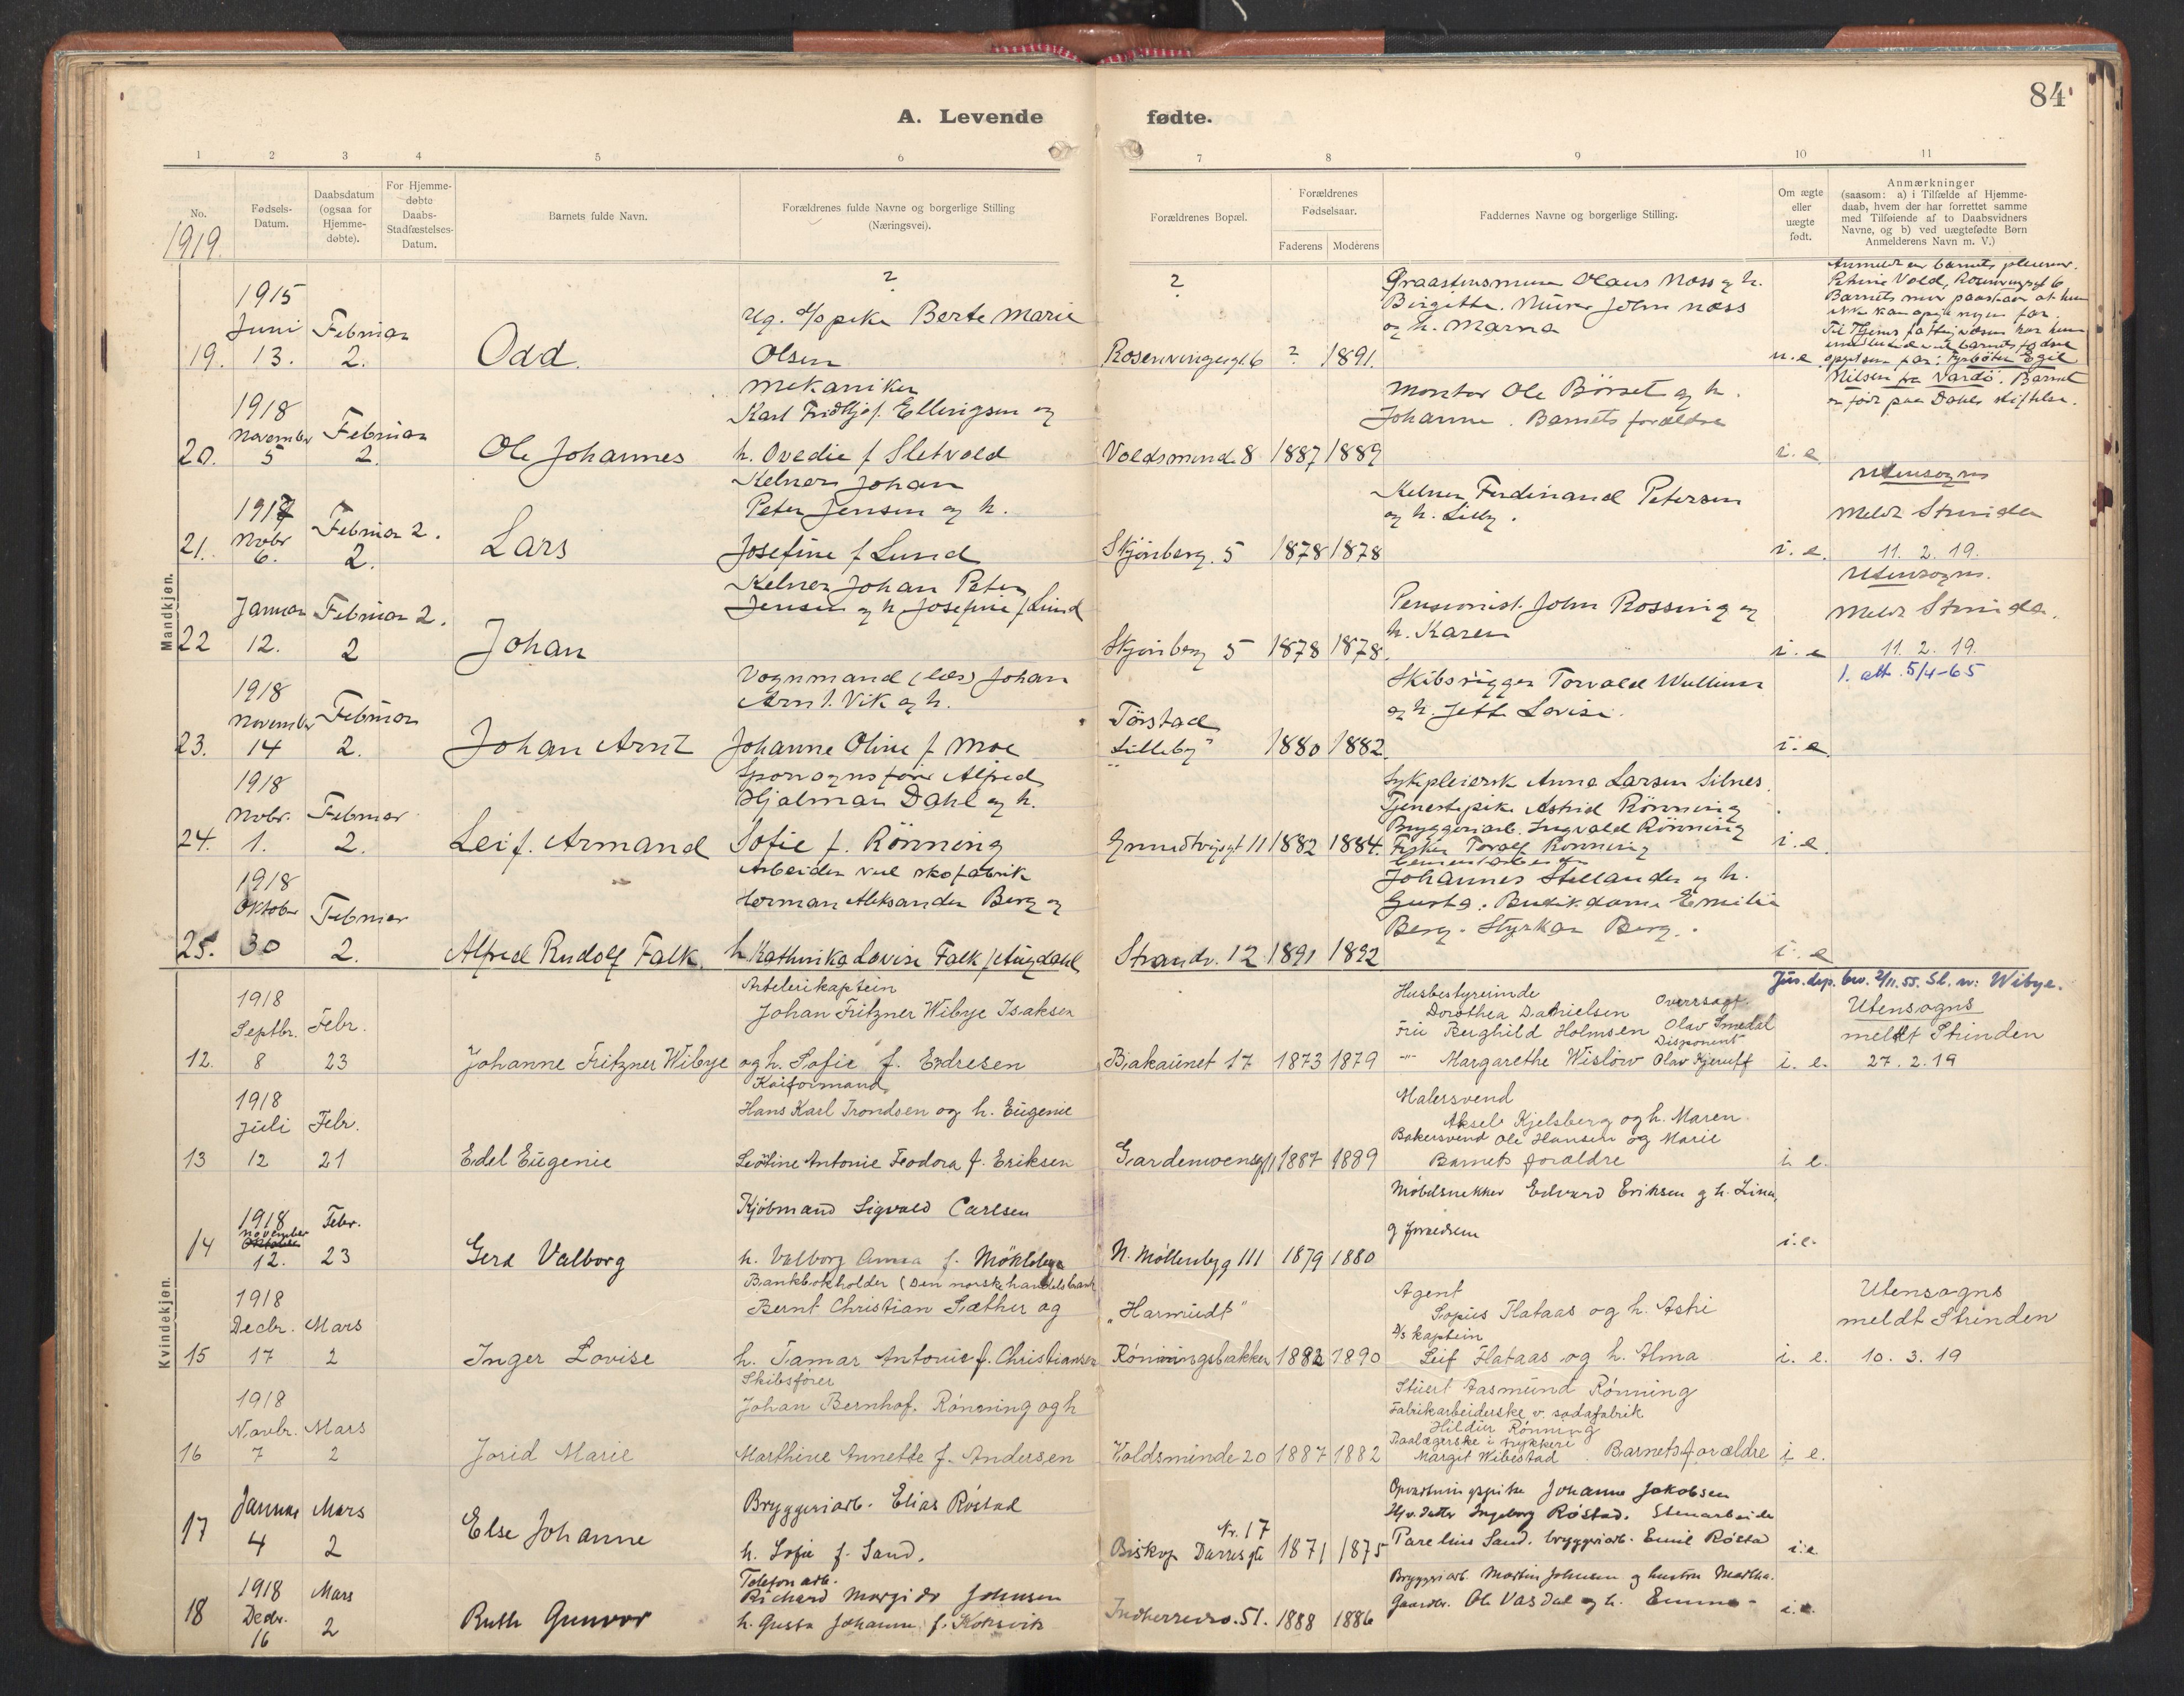 84
A. Levende fødte.
1 2 3 4 5 6 7 8 9 10 11
No.
1919.
Fødsels-
Datum.
Daabsdatum
(ogsaa for
Hjemme-
døbte).
For Hjemme-
døbte
Daabs-
Stadfæstelses-
Datum.
Barnets fulde Navn.
Forældrenes fulde Navne og borgerlige Stilling
(Næringsvei).
Forældrenes Bopæl.
Forældrenes
Fødselsaar.
Faderens Moderens
Faddernes Navne og borgerlige Stilling.
Om ægte
eller
uægte
født.
Anmærkninger
(saasom: a) i Tilfælde af Hjemme-
daab, hvem der har forrettet samme
med Tilføiende af to Daabsvidners
Navne, og b) ved uægtefødte Børn
Anmelderens Navn m. V.)
Mandkjøn.
1915
Juni
19. 13.
Februar
2.
Odd.
?
Ug. pike Berte Marie
Olsen
?
Rosenvingesgt. 6 ? 1891.
Olaus Næss og h.
Birgitte. Murer John Næss
og h. Marna
u. e.
Anmeldt av barnets pleiemor.
Petrine Vold, Rosenvingesgt 6
Barnets mor paastaar at hun
ikke kan opgi nogen far.
opgit som far: Fyrbøter Egil
Nilsen fra Vardö. Barnet
er født paa Dahls stiftelse.
1918
November
20. 5
Februar
2.
Ole Johannes
Mekaniker
Karl Fridthjof Ellingsen og
h. Ovedie f Sletvold
Voldsmind. 8 1887 1889
Montør Ole Börset og h.
Johanne. Barnets forældre
i. e.
1917
Nobr
21. 6.
Februar 2.
2.
Lars
Kelner Johan
Peter Jensen og h.
Josefine f Lund
Skjönberg. 5 1878 1878
Kelner Ferdinand Petersen
og h. Lilly.
i. e.
Utensogns
Meldt Strinden
11. 2. 19.
Januar
22 12.
Februar 2.
2
Johan
Kelner Johan Peter
Jensen og h Josefine f Lund
Skjönberg 5 1878 1878.
Pensionist. John Rossing og
h. Karen
i. e
Utensogns.
Meldt Strinden.
11. 2. 19.
1918
November
23. 14
Februar
2.
Johan Arnt
Vognmand (læs) Johan
Arnt. Vik og h.
Johanne Oline f Moe
Törstad
Lilleby" 1880 1882.
Skibsrigger Torvald Wullum
og h. Jette Lovise.
i. e
1. att. 5/4-65
1918
Nobr.
24. 1.
Februar
2.
Leif. Armand
Sporvognsfører Alfred
Hjalmar Dahl og h.
Sofie f. Rönning
Grundtvigsgt 11 1882 1884.
Sykepleiersk Anna Larsen Silnes.
Tjenestepike Astrid Rönning
Bryggeriarb. Ingvald Rönning
Fisker Toralf Rönning
i. e.
1918
Oktober
25. 30
Februar
2.
Alfred Rudolf Falk.
Arbeider ved skofabrik
Herman Aleksander Berg og
h Kathinka Lovise Falk f Augdahl
Strandv. 12 1891 1892
Johannes Stellander og h.
Gusta. Butikdame Emilie
Berg. Styrkar Berg.
i. e
Kvindekjøn.
1918
Septbr.
12. 8
Febr.
23
Johanne Fritzner Wibye
Artelerikaptein
Johan Fritzner Wibye Isaksen
og h. Sofie f. Endresen
Bakaunet 17 1873 1879
Husbestyrerinde
Dorothea Danielsen
Frk Berghild Holmsen Olav Smedal
Disponent
-"- Margarethe Wisløw Olav Kjeruff
i. e.
Jus. dep. bev. 2/11. 55. Sl. n: Wibye.
Utensogns
meldt Strinden
27. 2. 19
1918
Juli
13 12
Febr.
21
Edel Eugenie
Kaiformand
Hans Karl Trondsen og h. Eugenie
Leotine Antonie Teodora f. Eriksen
Gardemoensgt 11 1887 1889
Malersvend
Aksel Kjelsberg og h. Maren.
Bakersvend Ole Hansen og Marie
Barnets forældre
i. e.
1918
November
Oktober
14 12.
Febr.
23
Gerd Valborg
Kjöbmand Sigvald Carlsen
h. Valborg Anna f. Möklebye
N. Möllenbyg 111 1879 1880
Möbelsnekker Edvard Eriksen og h. Lina,
og forældrene
i. e.
1918
Decbr.
15 17
Mars
2
Inger Lovise
Bankbokholder (Den norske handelsbank
Bernt Christian Sæther og
h. Tamar Antonie f. Christiansen
„Harmudt"
Rönningsbakken 1882 1890
Agent
Sopus Flataas og h. Asti
D/s kaptein
Leif Flataas og h. Alma
i. e.
Utensogns
meldt Strinden
10. 3. 19
1918
Novbr.
16 7
Mars
2
Jorid Marie
Skibsfører
Johan Bernhof. Rönning og h
Marthine Annette f. Andersen
Voldsminde 20 1887 1882
Stuert Aasmund Rönning
Fabrikarbeiderske v. sodafabrik
Hildur Rönning
Paalægerske i trykkeri
Margit Wibestad. Barnets forældre
i e.
Januar
17 4
Mars
2
Else Johanne
Bryggeriarb. Elias Röstad
h. Sofie f. Sand.
Nr. 17
Biskop Darres gt 1871 1875
Opvartningspike Johanne Jakobsen
Hjv. datter Ingeborg Röstad. Stenarbeider
Parelius Sand. bryggeriarb. Emil Röstad
i. e.
1918
Decbr.
18 16
Mars
2
Ruth Gunvor
Telefonarb.
Richard Margido Johnsen
h. Gusta Johanne f. Koksvik
Indherredsv. 51. 1888 1886
Bryggeriarb. Martin Johnsen og hustru Martha.
Gaardbr. Ole Vasdal og h. Emma
i. e.